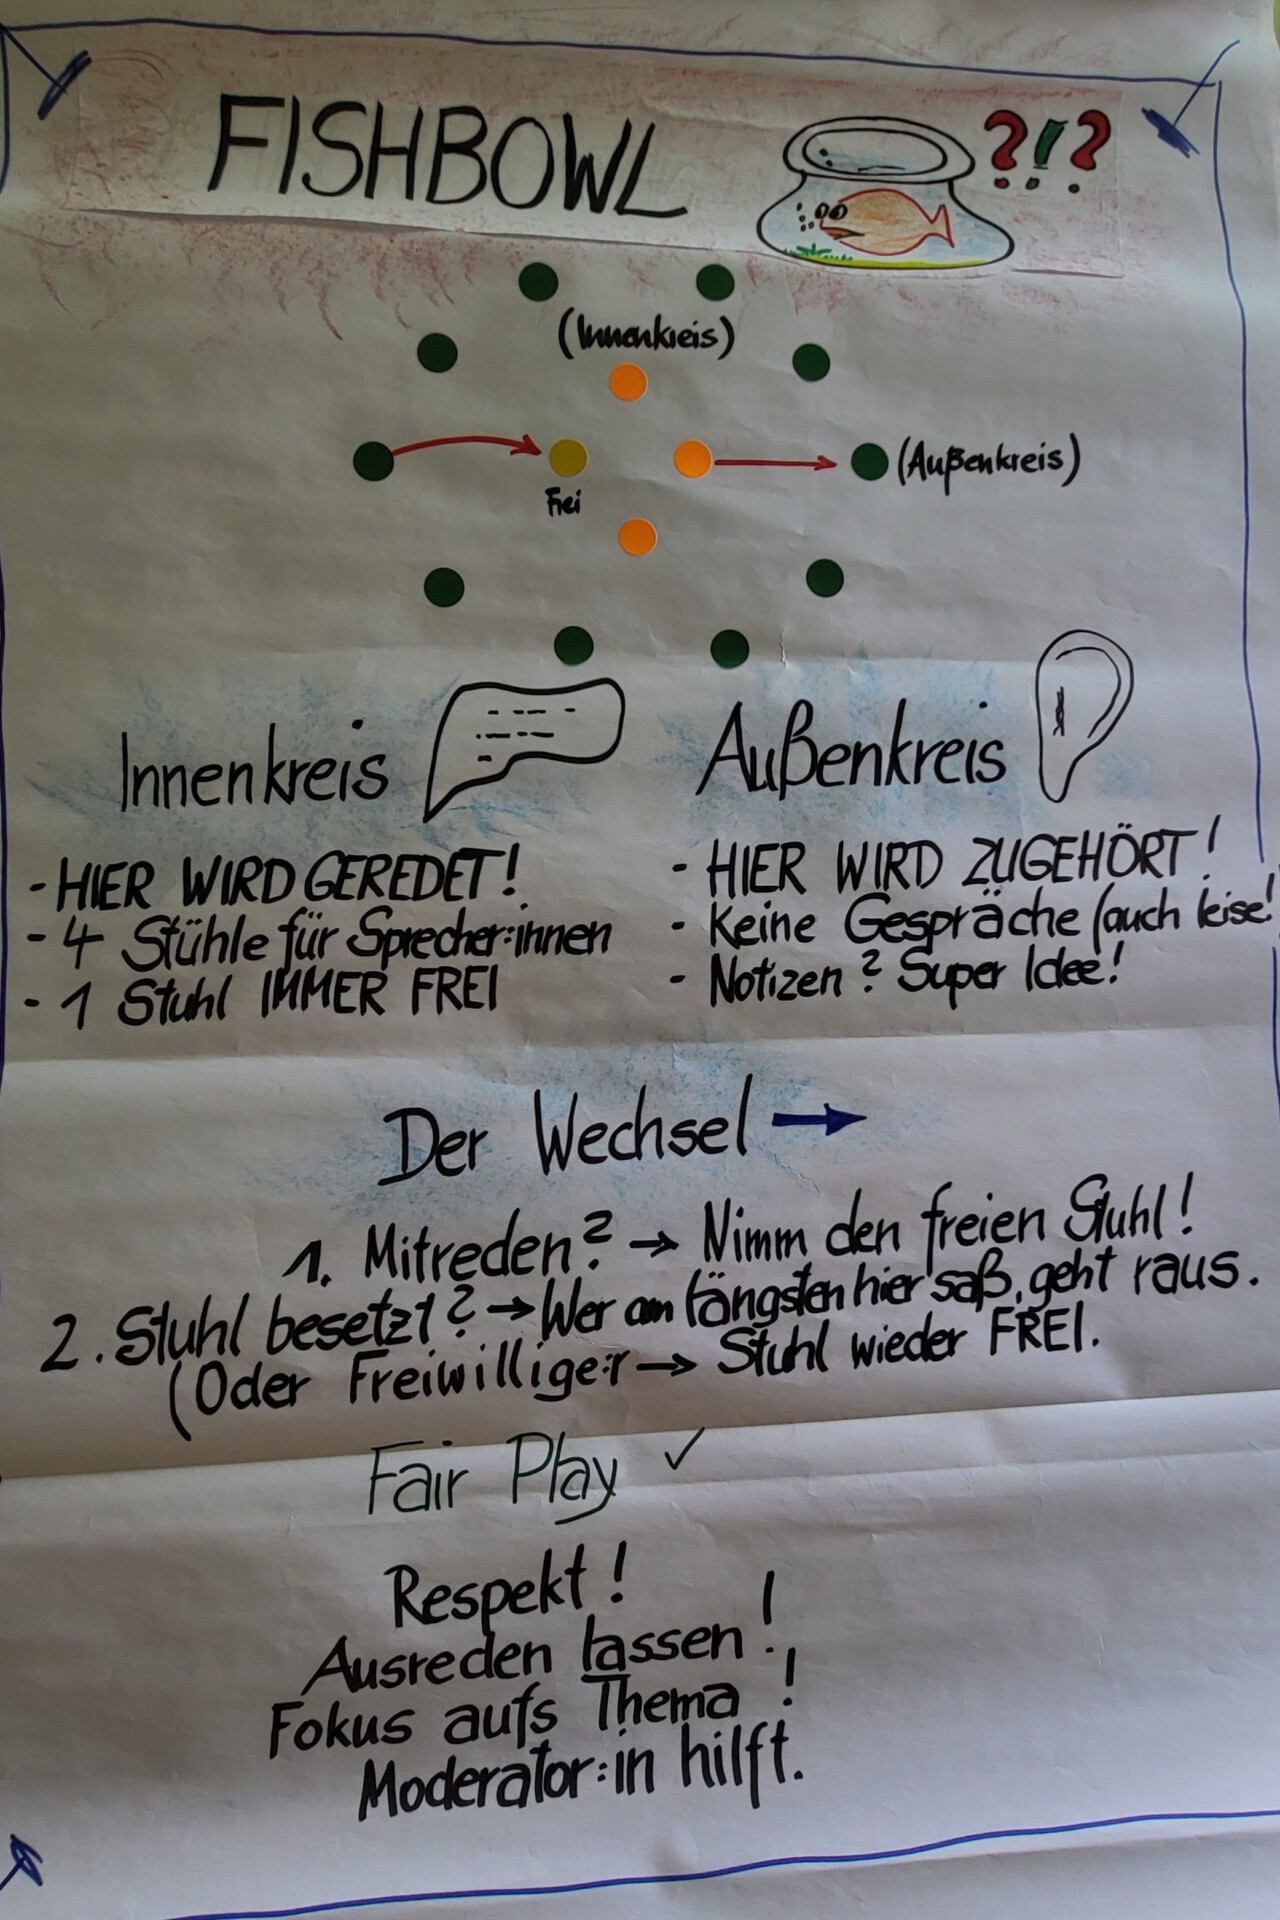 FISHBOWL ?!?
(Innenkreis)
(Außenkreis)
Frei
Innenkreis
- HIER WIRD GEREDET!
- 4 Stühle für Sprecher:innen
- 1 Stuhl IMMER FREI
Außenkreis
- HIER WIRD ZUGEHÖRT!
- Keine Gespräche (auch leise!
- Notizen? Super Idee!
Der Wechsel →
1. Mitreden? → Nimm den freien Stuhl!
2. Stuhl besetzt? → Wer am längsten hier saß, geht raus.
(Oder Freiwillige:r → Stuhl wieder FREI.
Fair Play ✓
Respekt!
Ausreden lassen!
Fokus aufs Thema!
Moderator:in hilft.